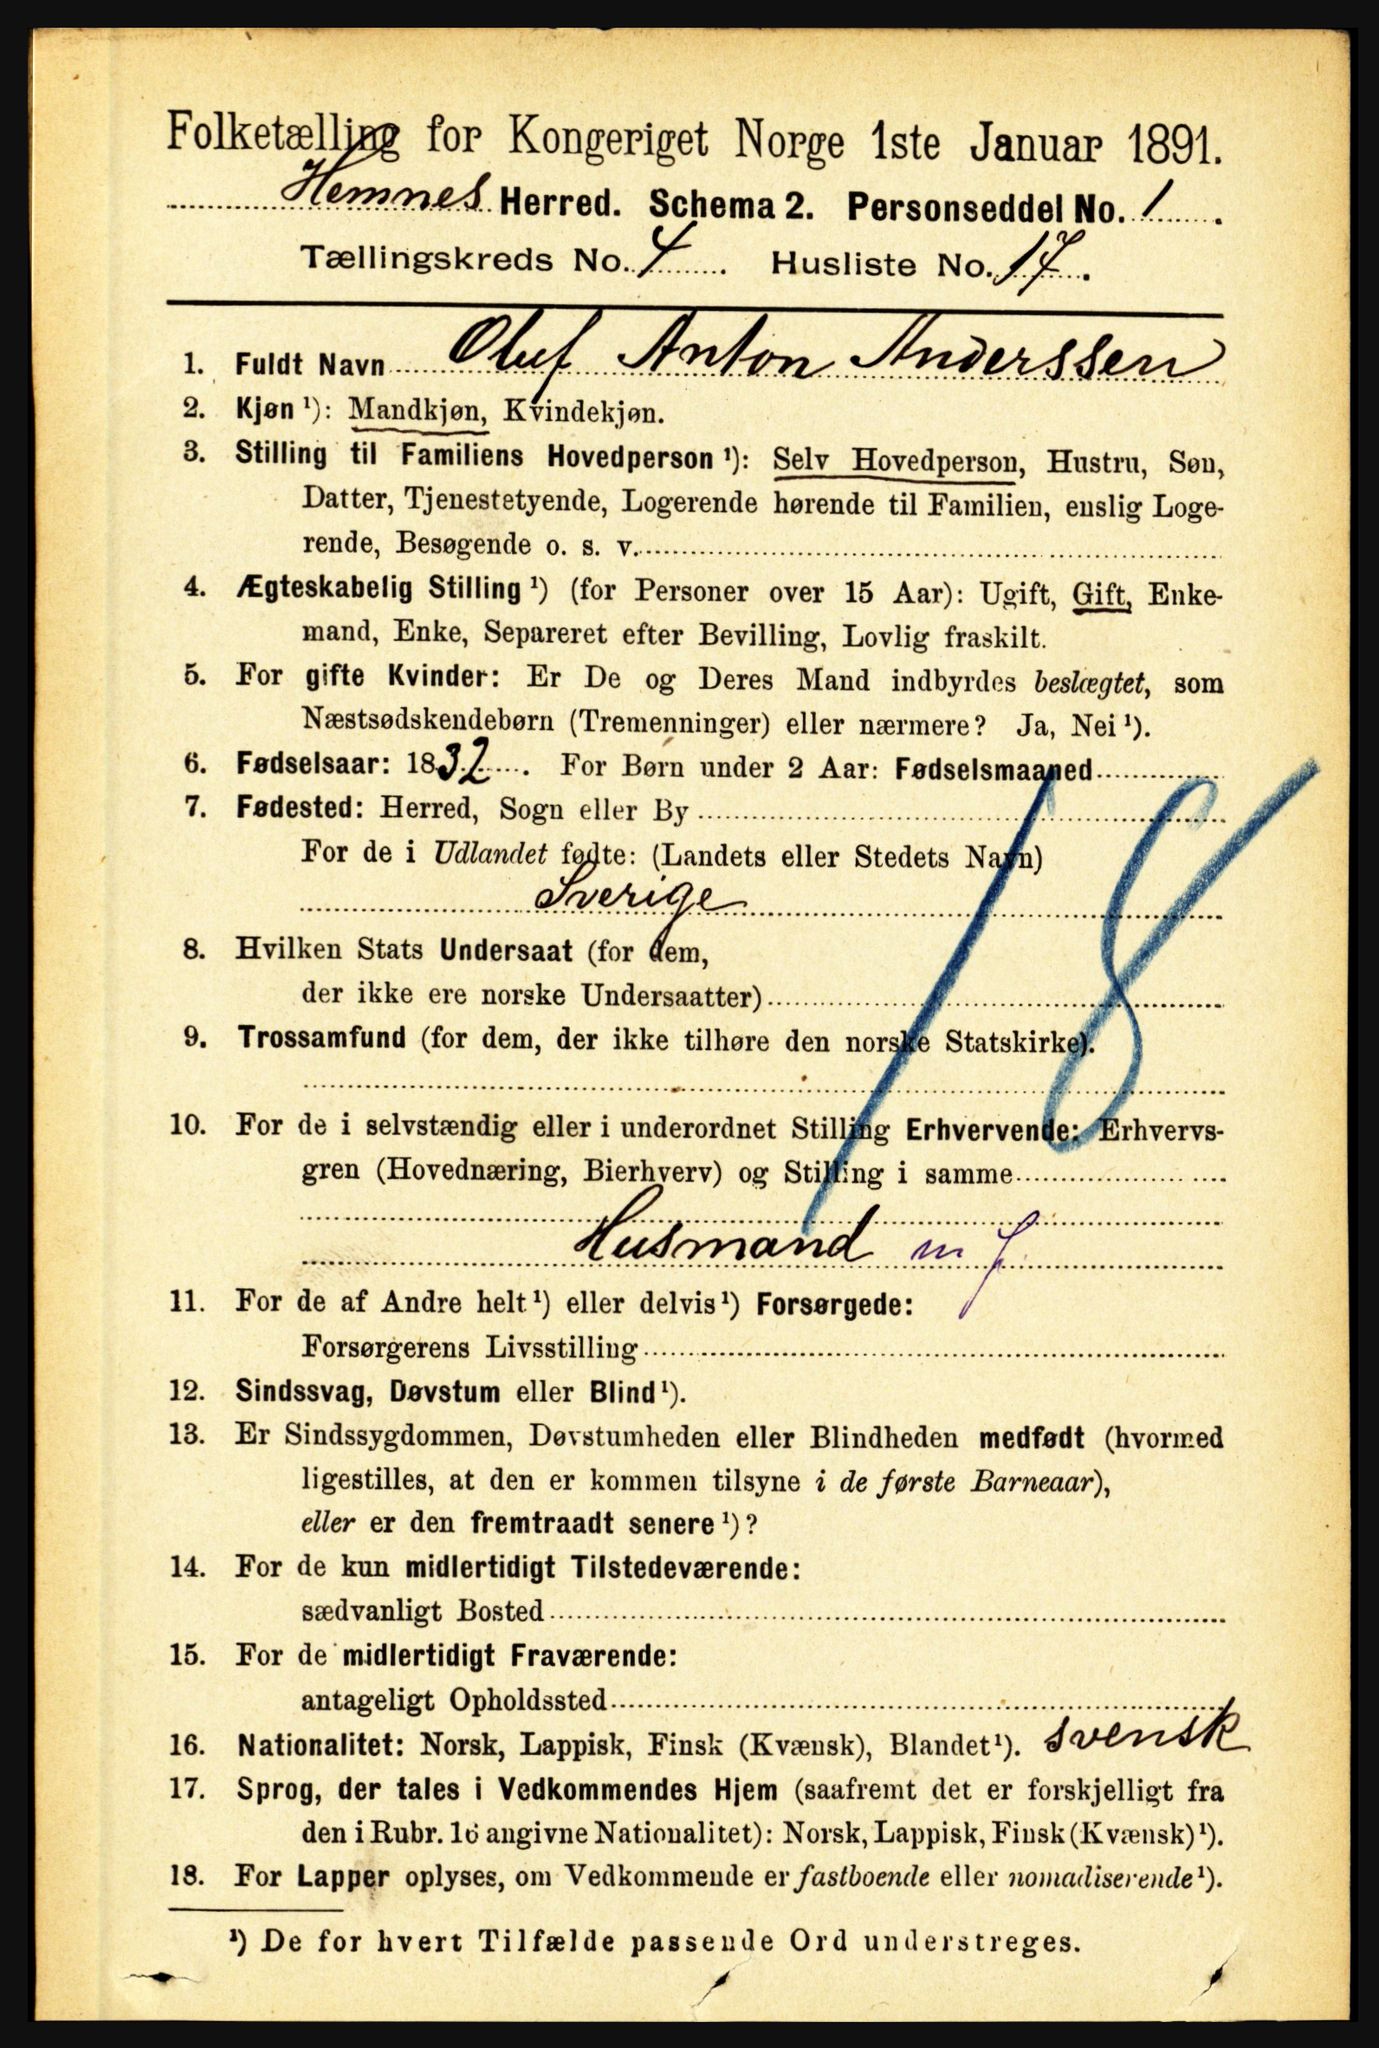 Folketælling for Kongeriget Norge 1ste Januar 1891.
Hemnes Herred. Schema 2. Personseddel No. 1.
Tællingskreds No. 4. Husliste No. 17.
1. Fuldt Navn Oluf Anton Anderssen
2. Kjøn ¹): Mandkjøn, Kvindekjøn.
3. Stilling til Familiens Hovedperson ¹): Selv Hovedperson, Hustru, Søn,
Datter, Tjenestetyende, Logerende hørende til Familien, enslig Loge-
rende, Besøgende o. s. v.
4. Ægteskabelig Stilling ¹) (for Personer over 15 Aar): Ugift, Gift, Enke-
mand, Enke, Separeret efter Bevilling, Lovlig fraskilt.
5. For gifte Kvinder: Er De og Deres Mand indbyrdes beslægtet, som
Næstsødskendebørn (Tremenninger) eller nærmere? Ja, Nei ¹).
6. Fødselsaar: 1832. For Børn under 2 Aar: Fødselsmaaned
7. Fødested: Herred, Sogn eller By
For de i Udlandet fødte: (Landets eller Stedets Navn)
Sverige
18
8. Hvilken Stats Undersaat (for dem,
der ikke ere norske Undersaatter)
9. Trossamfund (for dem, der ikke tilhøre den norske Statskirke).
10. For de i selvstændig eller i underordnet Stilling Erhvervende: Erhvervs-
gren (Hovednæring, Bierhverv) og Stilling i samme
Husmand m J
11. For de af Andre helt ¹) eller delvis ¹) Forsørgede:
Forsørgerens Livsstilling
12. Sindssvag, Døvstum eller Blind ¹).
13. Er Sindssygdommen, Døvstumheden eller Blindheden medfødt (hvormed
ligestilles, at den er kommen tilsyne i de første Barneaar),
eller er den fremtraadt senere ¹)?
14. For de kun midlertidigt Tilstedeværende:
sædvanligt Bosted
15. For de midlertidigt Fraværende:
antageligt Opholdssted
16. Nationalitet: Norsk, Lappisk, Finsk (Kvænsk), Blandet ¹). svensk
17. Sprog, der tales i Vedkommendes Hjem (saafremt det er forskjelligt fra
den i Rubr. 16 angivne Nationalitet): Norsk, Lappisk, Finsk (Kvænsk) ¹).
18. For Lapper oplyses, om Vedkommende er fastboende eller nomadiserende ¹).
¹) De for hvert Tilfælde passende Ord understreges.